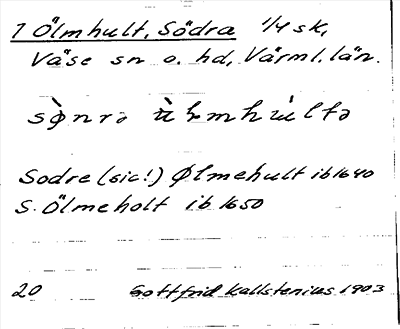 1 Ölmhult, Södra 1/4 sk,
Väse sn o. hd, Värml. län.
sø̀nrə ùlmhùltə
Sodre (sic!) Ølmehult ib 1640
S. Ölmeholt ib 1650
20 Gottfrid Kallstenius 1903